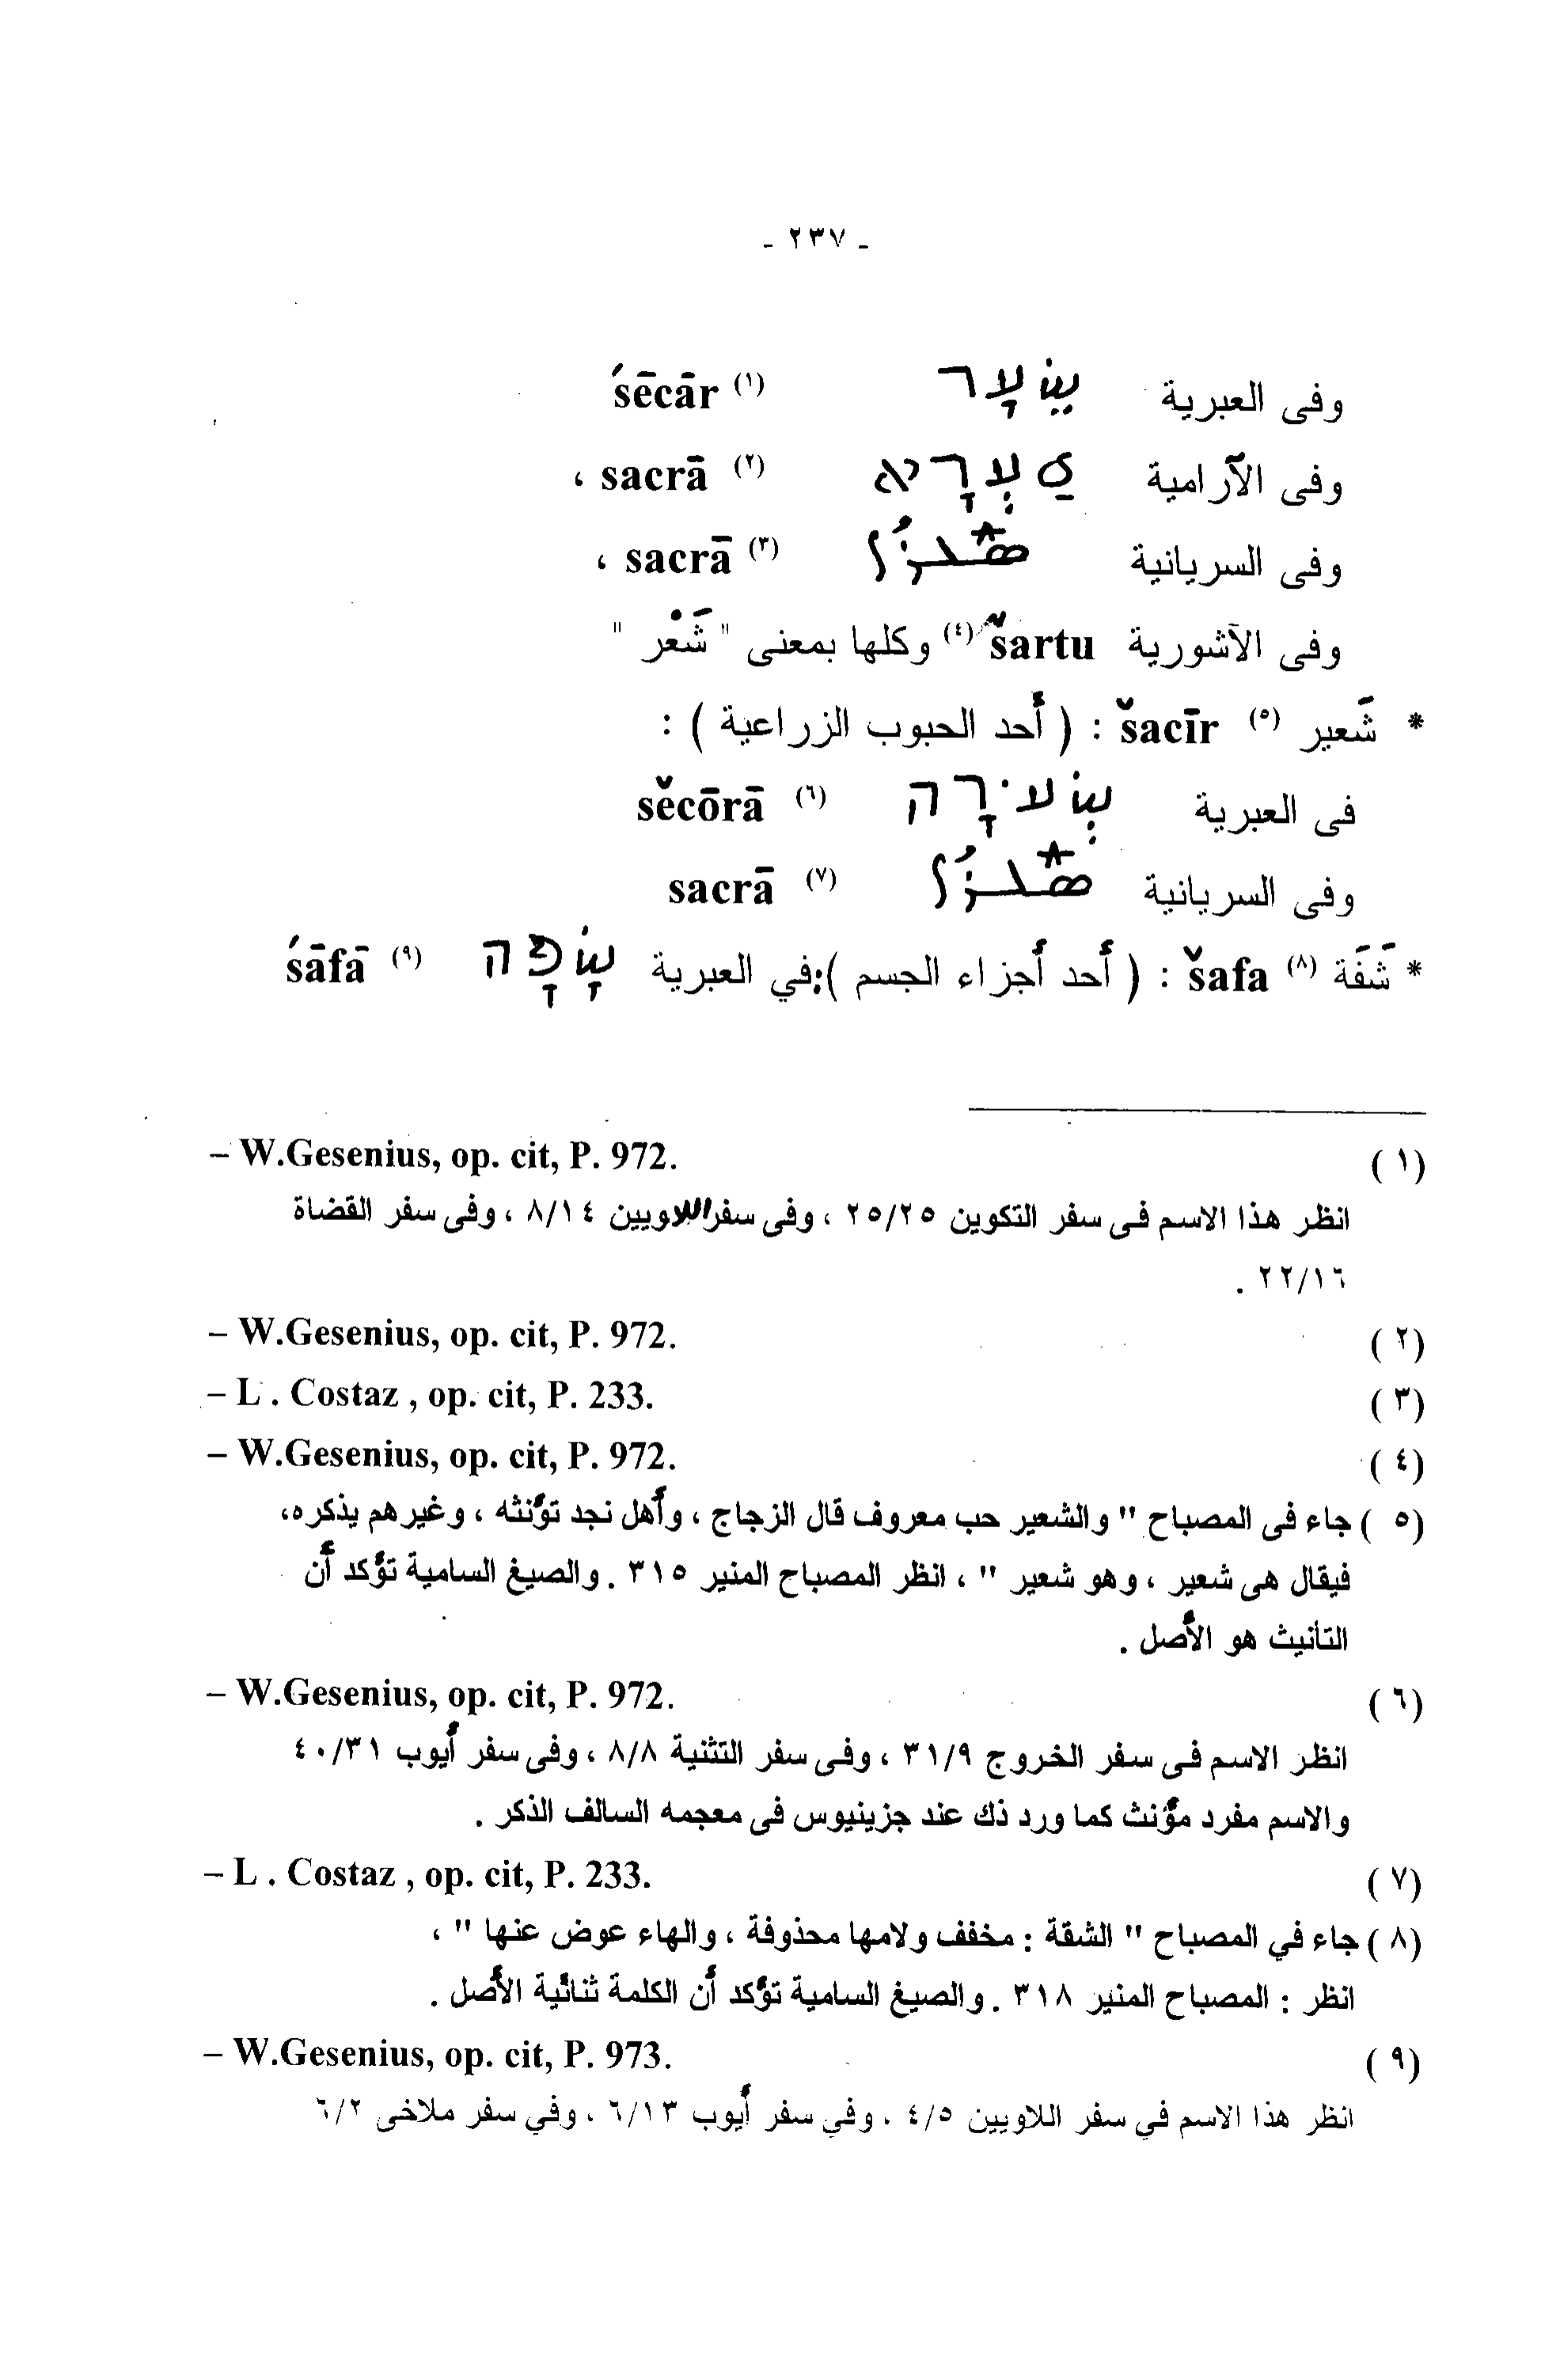 - ٢٣٧ -
وفى العبرية שֵׂעָר śēcār (١)
وفى الآرامية סַעְרָא sacrā (٢) ،
وفى السريانية ܣܥܪܐ sacrā (٣) ،
وفى الآشورية šartu (٤) وكلها بمعنى " شَعْر "
* شَعير (٥) šacīr : ( أحد الحبوب الزراعية ) :
فى العبرية שְׂעֹרָה šěcōrā (٦)
وفى السريانية ܣܥܪܐ sacrā (٧)
* شَفَة (٨) šafa : ( أحد أجزاء الجسم ):في العبرية שָׂפָה śāfā (٩)
(١) – W.Gesenius, op. cit, P. 972.
انظر هذا الاسم فى سفر التكوين ٢٥/٢٥ ، وفى سفر اللاويين ٨/١٤ ، وفى سفر القضاة
٢٢/١٦ .
(٢) – W.Gesenius, op. cit, P. 972.
(٣) – L . Costaz , op. cit, P. 233.
(٤) – W.Gesenius, op. cit, P. 972.
(٥) جاء فى المصباح " والشعير حب معروف قال الزجاج ، وأهل نجد تؤنثه ، وغيرهم يذكره،
فيقال هى شعير ، وهو شعير " ، انظر المصباح المنير ٣١٥ . والصيغ السامية تؤكد أن
التأنيث هو الأصل .
(٦) – W.Gesenius, op. cit, P. 972.
انظر الاسم فى سفر الخروج ٣١/٩ ، وفى سفر التثنية ٨/٨ ، وفى سفر أيوب ٤٠/٣١
والاسم مفرد مؤنث كما ورد ذلك عند جزينيوس فى معجمه السالف الذكر .
(٧) – L . Costaz , op. cit, P. 233.
(٨) جاء في المصباح " الشقة : مخفف ولامها محذوفة ، والهاء عوض عنها " ،
انظر : المصباح المنير ٣١٨ . والصيغ السامية تؤكد أن الكلمة ثنائية الأصل .
(٩) – W.Gesenius, op. cit, P. 973.
انظر هذا الاسم في سفر اللاويين ٤/٥ ، وفي سفر أيوب ٦/١٣ ، وفي سفر ملاخى ٦/٢